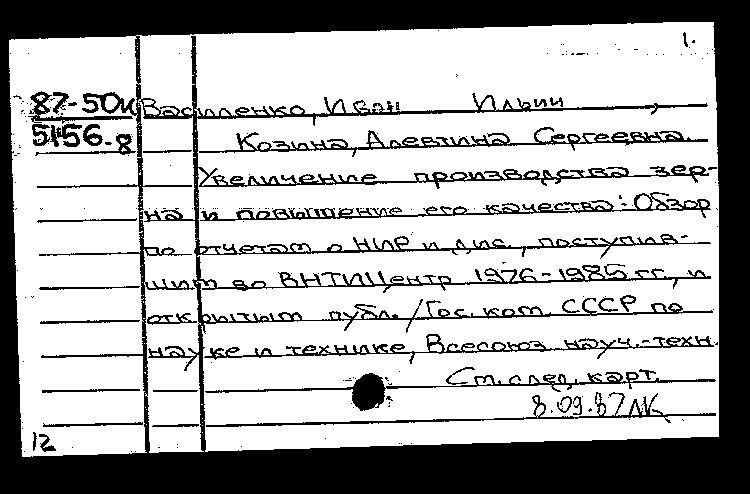 1.
87-50к Василенко, Иван Ильич,
5156-8 Козина, Алевтина Сергеевна.
Увеличение производства зер-
на и повышение его качества: Обзор
по отчетам о НИР и дис., поступив-
шим во ВНТИЦентр 1976-1985 гг., и
открытым публ. / Гос. ком. СССР по
науке и технике, Всесоюз. науч.-техн.
См. след. карт.
8.09.87
12